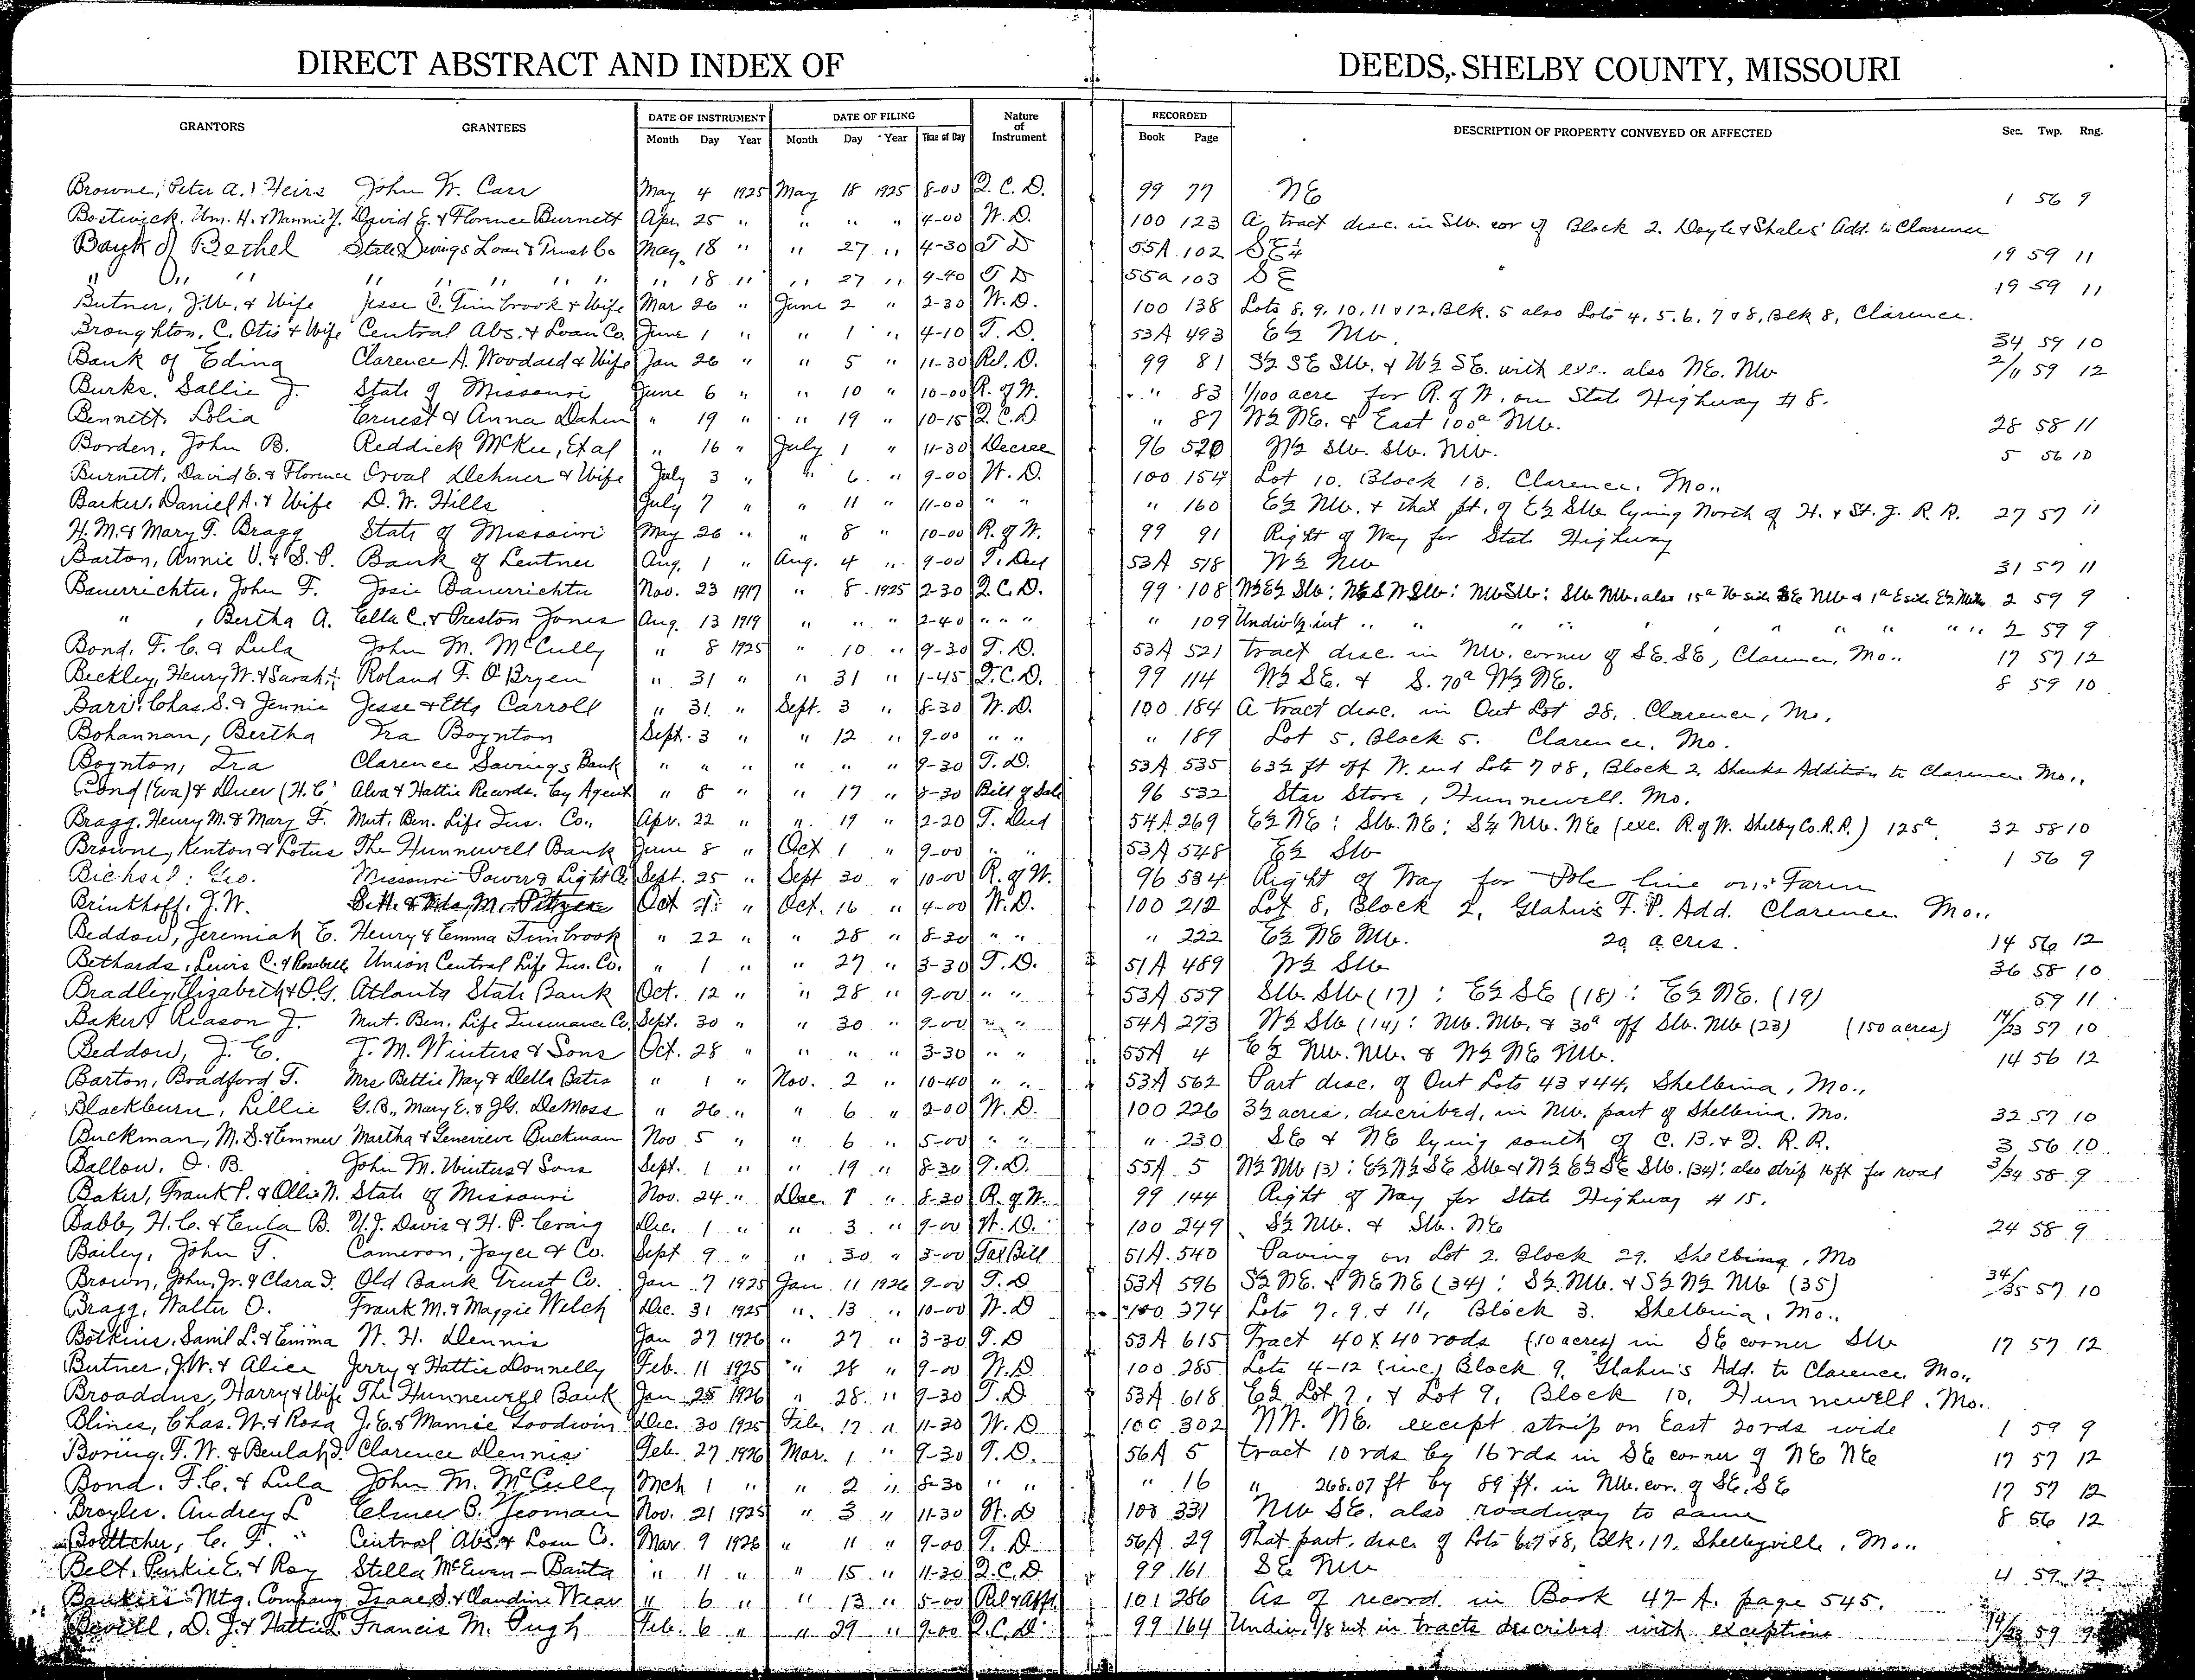 DIRECT ABSTRACT AND INDEX OF DEEDS, SHELBY COUNTY, MISSOURI
GRANTORS GRANTEES DATE OF INSTRUMENT DATE OF FILING Nature of Instrument RECORDED DESCRIPTION OF PROPERTY CONVEYED OR AFFECTED Sec. Twp. Rng.
Month Day Year Month Day Year Time of Day Book Page
Browne, Peter A.) Heirs John W. Carr May 4 1925 May 18 1925 8-00 Q.C.D. 99 77 NE 1 56 9
Bostwick, Wm. H. & Nannie Y. David E. & Florence Burnett Apr. 25 " " " " 4-00 W.D. 100 123 A tract desc. in SW. cor of Block 2. Doyle & Shales' Add. to Clarence
Bank of Bethel State Savings Loan & Trust Co May 18 " " 27 " 4-30 T D 55A 102 SE¼ 19 59 11
" " " " " " " " " 18 " " 27 " 4-40 T D 55a 103 SE 19 59 11
Butner, J.W. & Wife Jesse C. Timbrook & Wife Mar 26 " June 2 " 2-30 W.D. 100 138 Lots 8, 9, 10, 11 & 12, Blk. 5 also Lots 4, 5, 6, 7 & 8, Blk 8, Clarence.
Broughton, C. Otis & Wife Central Abs. & Loan Co. June 1 " " 1 " 4-10 T.D. 53A 493 E½ NW. 34 59 10
Bank of Edina Clarence A. Woodard & Wife Jan 26 " " 5 " 11-30 Rel. D. 99 81 S½ SE SW. & W½ SE. with exc. also NE. NW 2/11 59 12
Burks. Sallie J. State of Missouri June 6 " " 10 " 10-00 R. of W. " 83 1/100 acre for R. of W. on State Highway # 8.
Bennett, Lolia Ernest & Anna Dahm " 19 " " 19 " 10-15 Q.C.D. " 87 W½ NE. & East 100a NW. 28 58 11
Borden, John B. Reddick McKee, Et al " 16 " July 1 " 11-30 Decree 96 520 W½ SW. SW. NW. 5 56 10
Burnett, David E. & Florence Orval Dehner & Wife July 3 " " 6 " 9-00 W.D. 100 154 Lot 10. Block 13. Clarence, Mo.,
Barker, Daniel A. & Wife D. W. Hills July 7 " " 11 " 11-00 " " " 160 E½ NW. & that pt. of E½ SW lying North of H. & St. J. R. R. 27 57 11
H. M. & Mary F. Bragg State of Missouri May 26 " " 8 " 10-00 R. of W. 99 91 Right of Way for State Highway
Barton, Annie V. & S. P. Bank of Lentner Aug. 1 " Aug. 4 " 9-00 T. Deed 53A 518 W½ NW 31 57 11
Bauerrichter, John F. Josie Bauerrichter Nov. 23 1917 " 8 1925 2-30 Q.C.D. 99 108 2 59 9
" , Bertha A. Ella C. & Preston Jones Aug. 13 1919 " " " 2-40 " " " " 109 Undiv ½ int " " " " 2 59 9
Bond, F. C. & Lula John M. McCully " 8 1925 " 10 " 9-30 T.D. 53A 521 tract desc. in NW. corner of SE. SE, Clarence, Mo.. 17 57 12
Beckley, Henry W. & Sarah Roland F. O'Bryen " 31 " " 31 " 1-45 Q.C.D. 99 114 W½ SE. & S. 70a W½ NE. 8 59 10
Barr, Chas. S. & Jennie Jesse & Etta Carroll " 31 " Sept. 3 " 8-30 W.D. 100 184 A tract desc. in Out Lot 28, Clarence, Mo,
Bohannan, Bertha Ira Boynton Sept. 3 " " 12 " 9-00 " " " 189 Lot 5, Block 5. Clarence, Mo.
Boynton, Ira Clarence Savings Bank " " " " " " 9-30 T.D. 53A 535 63½ ft off W. end Lots 7 & 8, Block 2, Shanks Addition to Clarence Mo.,
(Eva) & Duer (H.C. Alva & Hattie Records, by Agent " 8 " " 17 " 8-30 Bill of Sale 96 532 Star Store, Hunnewell. Mo.
Bragg, Henry M. & Mary F. Mut. Ben. Life Ins. Co., Apr. 22 " " 19 " 2-20 T. Deed 54A 269 E½ NE: SW. NE; S¼ NW. NE (exc. R. of W. Shelby Co. R.R.) 125a 32 58 10
Browne, Kenton & Lotus The Hunnewell Bank June 8 " Oct 1 " 9-00 " " 53A 548 E½ SW 1 56 9
Bichsel: Geo. Missouri Power & Light Co. Sept. 25 " Sept 30 " 10-00 R. of W. 96 534 Right of Way for Pole line on Farm
Brinkhoff, J. W. Oct " Oct. 16 " 4-00 W.D. 100 212 Lot 8, Block 2, Glahn's F. P. Add. Clarence. Mo..
Beddow, Jeremiah E. Henry & Emma Timbrook " 22 " " 28 " 8-30 " " " 222 E½ NE NW. 20 acres. 14 56 12
Bethards, Lewis C. & Rosabell Union Central Life Ins. Co. " 1 " " 27 " 3-30 T.D. 51A 489 W½ SW 36 58 10
Bradley, Elizabeth & O.G. Atlanta State Bank Oct. 12 " " 28 " 9-00 " " 53A 559 SW. SW (17): E½ SE (18): E½ NE. (19) 59 11
Baker, Reason J. Mut. Ben. Life Insurance Co. Sept. 30 " " 30 " 9-00 " " 54A 273 W½ SW (14): NW. NW. & 30a off SW. NW (23) (150 acres) 14/23 57 10
Beddow, J. E. J. M. Winters & Sons Oct. 28 " " " " 3-30 " " 55A 4 E½ NW. NW. & W½ NE NW. 14 56 12
Barton, Bradford T. Mrs Bettie Way & Della Bates " 1 " Nov. 2 " 10-40 " " 53A 562 Part desc. of Out Lots 43 & 44, Shelbina, Mo.,
Blackburn, Lillie G. B., Mary E. & J.G. DeMoss " 26 " " 6 " 2-00 W.D. 100 226 3½ acres, described, in NW. part of Shelbina, Mo. 32 57 10
Buckman, M. S. & Emmer Martha & Genevieve Buckman Nov 5 " " 6 " 5-00 " " " 230 SE & NE lying south of C. B. & Q. R. R. 3 56 10
Ballow, O. B. John M. Winters & Sons Sept. 1 " " 19 " 8-30 T.D. 55A 5 W½ NW (3): E½ W½ SE SW & W½ E½ SE SW. (34): also strip 16 ft for road 3/34 58 9
Baker, Frank P. & Ollie N. State of Missouri Nov. 24 " Dec. 1 " 8-30 R. of W. 99 144 Right of Way for State Highway # 15.
Babby, H. C. & Eula B. Y. J. Davis & H. P. Craig Dec. 1 " " 3 " 9-00 W.D. 100 249 S½ NW. & SW. NE 24 58 9
Bailey, John T. Cameron, Joyce & Co. Sept 9 " " 30 " 5-00 Tax Bill 51A 540 Paving on Lot 2. Block 29. Shelbina, Mo
Brown, John, Jr. & Clara J. Old Bank Trust Co. Jan 7 1925 Jan 11 1926 9-00 T.D 53A 596 S½ NE. & NE NE (34): S½ NW. & S½ N½ NW (35) 34/35 57 10
Bragg, Walter O. Frank M. & Maggie Welch Dec. 31 1925 " 13 " 10-00 W.D 100 274 Lots 7, 9 & 11, Block 3. Shelbina, Mo..
Botkins, Saml L. & Emma W. H. Dennis Jan 27 1926 " 27 " 3-30 T.D 53A 615 Tract 40 X 40 rods (10 acres) in SE corner SW 17 57 12
Butner, J.W. & Alice Jerry & Hattie Donnelly Feb. 11 1925 " 28 " 9-00 W.D 100 285 Lots 4-12 (inc.) Block 9, Glahn's Add. to Clarence, Mo.,
Broaddus, Harry & Wife The Hunnewell Bank Jan 25 1926 " 28 " 9-30 T.D 53A 618 E½ Lot 7, & Lot 9, Block 10, Hunnewell, Mo..
Blines, Chas. W. & Rosa J. E. & Mamie Goodwin Dec. 30 1925 Feb. 17 " 11-30 W.D 100 302 NW. NE. except strip on East 20 rds wide 1 59 9
Boring, F. W. & Beulah J. Clarence Dennis Feb. 27 1926 Mar. 1 " 9-30 T.D. 56A 5 tract 10 rds by 16 rds in SE corner of NE NE 17 57 12
Bond, F. C. & Lula John M. McCully Mch 1 " " 2 " 8-30 " " " 16 " 268.07 ft by 89 ft. in NW. cor. of SE, SE 17 57 12
Broyles, Audrey L Elmer B. Yeoman Nov. 21 1925 " 3 " 11-30 W.D 100 331 NW SE. also roadway to same 8 56 12
Boettcher, C. F. " Central Abs. & Loan Co. Mar. 9 1926 " 11 " 9-00 T.D 56A 29 That part, desc. of Lots 6, 7 & 8, Blk. 17, Shelbyville, Mo..
Belt, Perkie E. & Roy Stella McEwen-Banta " 11 " " 15 " 11-30 Q.C.D 99 161 SE NW 4 59 12
Bankers Mtg. Company Isaac S. & Claudine Wear " 6 " " 13 " 5-00 Rel & Afft. 101 286 As of record in Book 47-A. page 545.
Bevill, D. J. & Hattie L Francis M. Pugh Feb. 6 " " 29 " 9-00 Q.C.D. 99 164 Undiv. 1/8 int in tracts described with exceptions 59 9